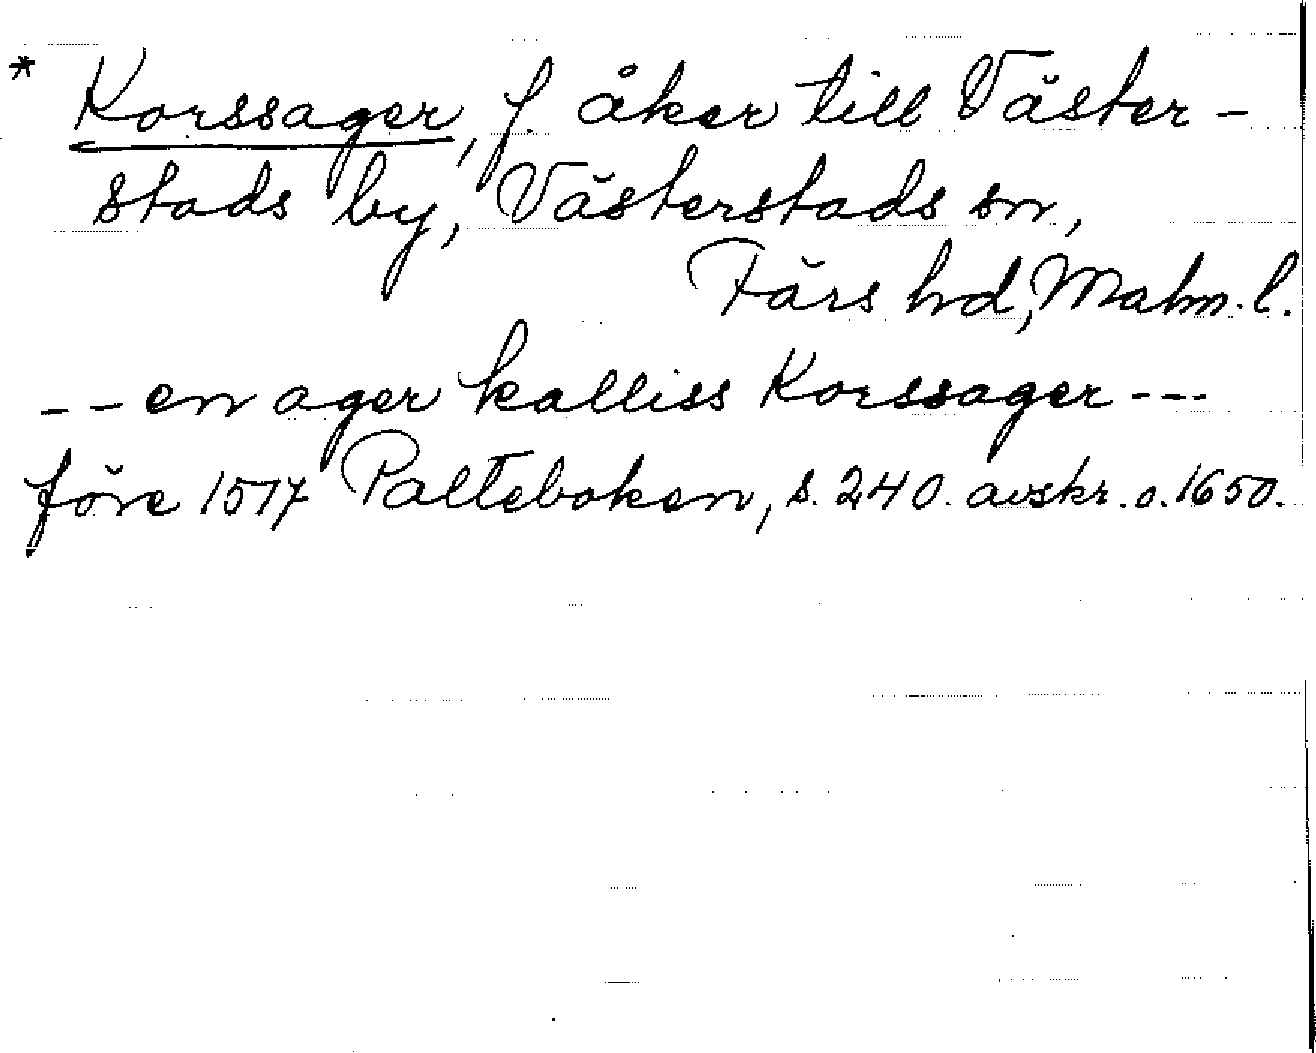 * Korssager, f. åker till Väster-
stads by, Västerstads sn,
Färs hd, Malm. l.
-- en ager kalliss Korssager ---
före 1517 Palteboken, s. 240. avskr. o. 1650.